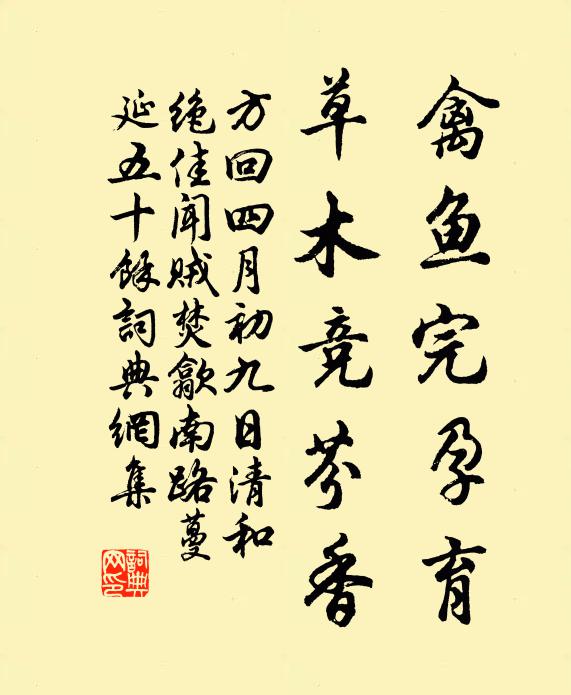 禽鱼完孕育
草木竞芬香
方回四月初九日清和
绝佳闻贼焚歙南路蔓
延五十餘詞典網集
詞典
网印